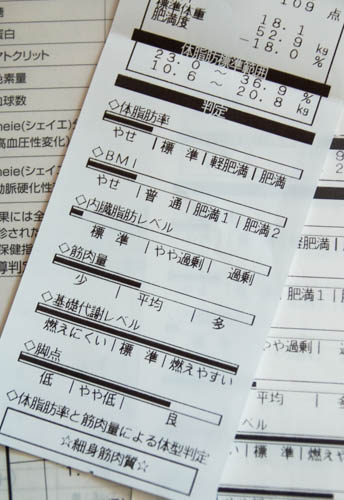 109 点
標準体重
肥満度
18.1
52.9 kg
-18.0 %
体脂肪標準範囲
23.0 ～ 36.9 %
10.6 ～ 20.8 kg
判定
◇体脂肪率
やせ | 標 準 | 軽肥満 | 肥満
◇BMI
やせ | 普 通 | 肥満1 | 肥満2
◇内臓脂肪レベル
標 準 | やや過剰 | 過剰
◇筋肉量
少 | 平均 | 多
◇基礎代謝レベル
燃えにくい | 標 準 | 燃えやすい
◇脚点
低 | やや低 | 良
◇体脂肪率と筋肉量による体型判定
☆細身筋肉質☆
蛋白
マトクリット
色素量
血球数
heie(シェイエ)
高血圧性変化)
heie(シェイエ)
動脈硬化性
果には全
診された
保健指
導判定
軽肥満 | 肥満
| 肥満1 |
やや過剰 |
平均 |
レベル
| 標 準 | 燃え
低 | 良